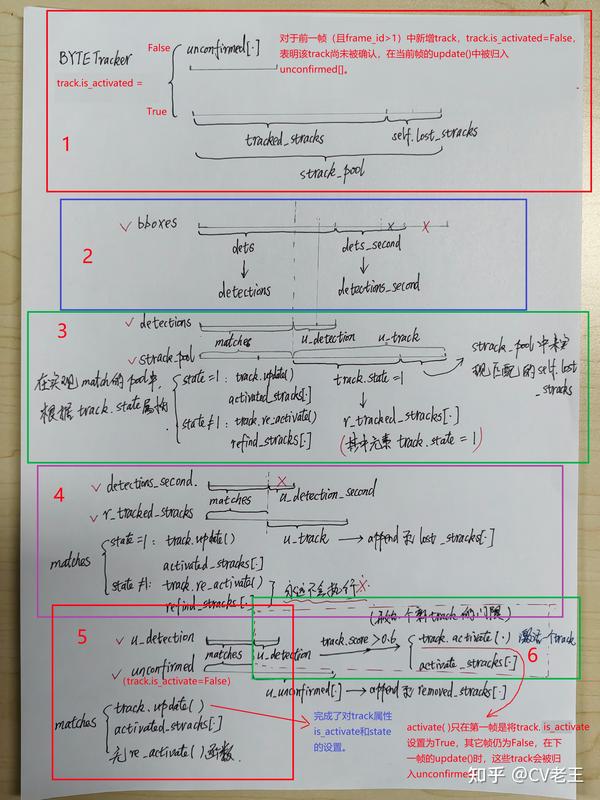 对于前一帧（且frame_id>1）中新增track，track.is_activated=False，
表明该track尚未被确认，在当前帧的update()中被归入
unconfirmed[]。
False
unconfirmed[·]
BYTETracker
track.is_activated =
True
1
tracked_stracks
self.lost_stracks
strack_pool
2
✓ bboxes
× ×
dets
dets_second
detections
detections_second
3
✓ detections
matches
u_detection
u_track
✓ strack_pool
在实现match的pool中，
根据track.state属性
state=1: track.update()
activated_stracks[·]
state≠1: track.re_activate()
refind_stracks[·]
track.state=1
r_tracked_stracks[·]
(其中元素 track.state=1)
strack_pool中未实
现匹配的self.lost
_stracks
4
✓ detections_second.
×
matches
u_detection_second
✓ r_tracked_stracks
u_track → append到 lost_stracks[·]
matches
state=1: track.update()
activated_stracks[·]
state≠1: track.re_activate()
refind_stracks[·]
永远不会执行 ×
5
✓ u_detection
matches
u_detection
✓ unconfirmed
(track.is_activate=False)
u_unconfirmed[·] → append到 removed_stracks[·]
matches
track.update()
activated_stracks[·]
无re_activate()函数.
6
track.score>0.6
track.activate(·) 激活个track
activate_stracks[·]
完成了对track属性
is_activate和state
的设置。
activate( )只在第一帧是将track. is_activate
设置为True，其它帧仍为False，在下
一帧的update()时，这些track会被归
入unconfirmed
知乎 @CV老王